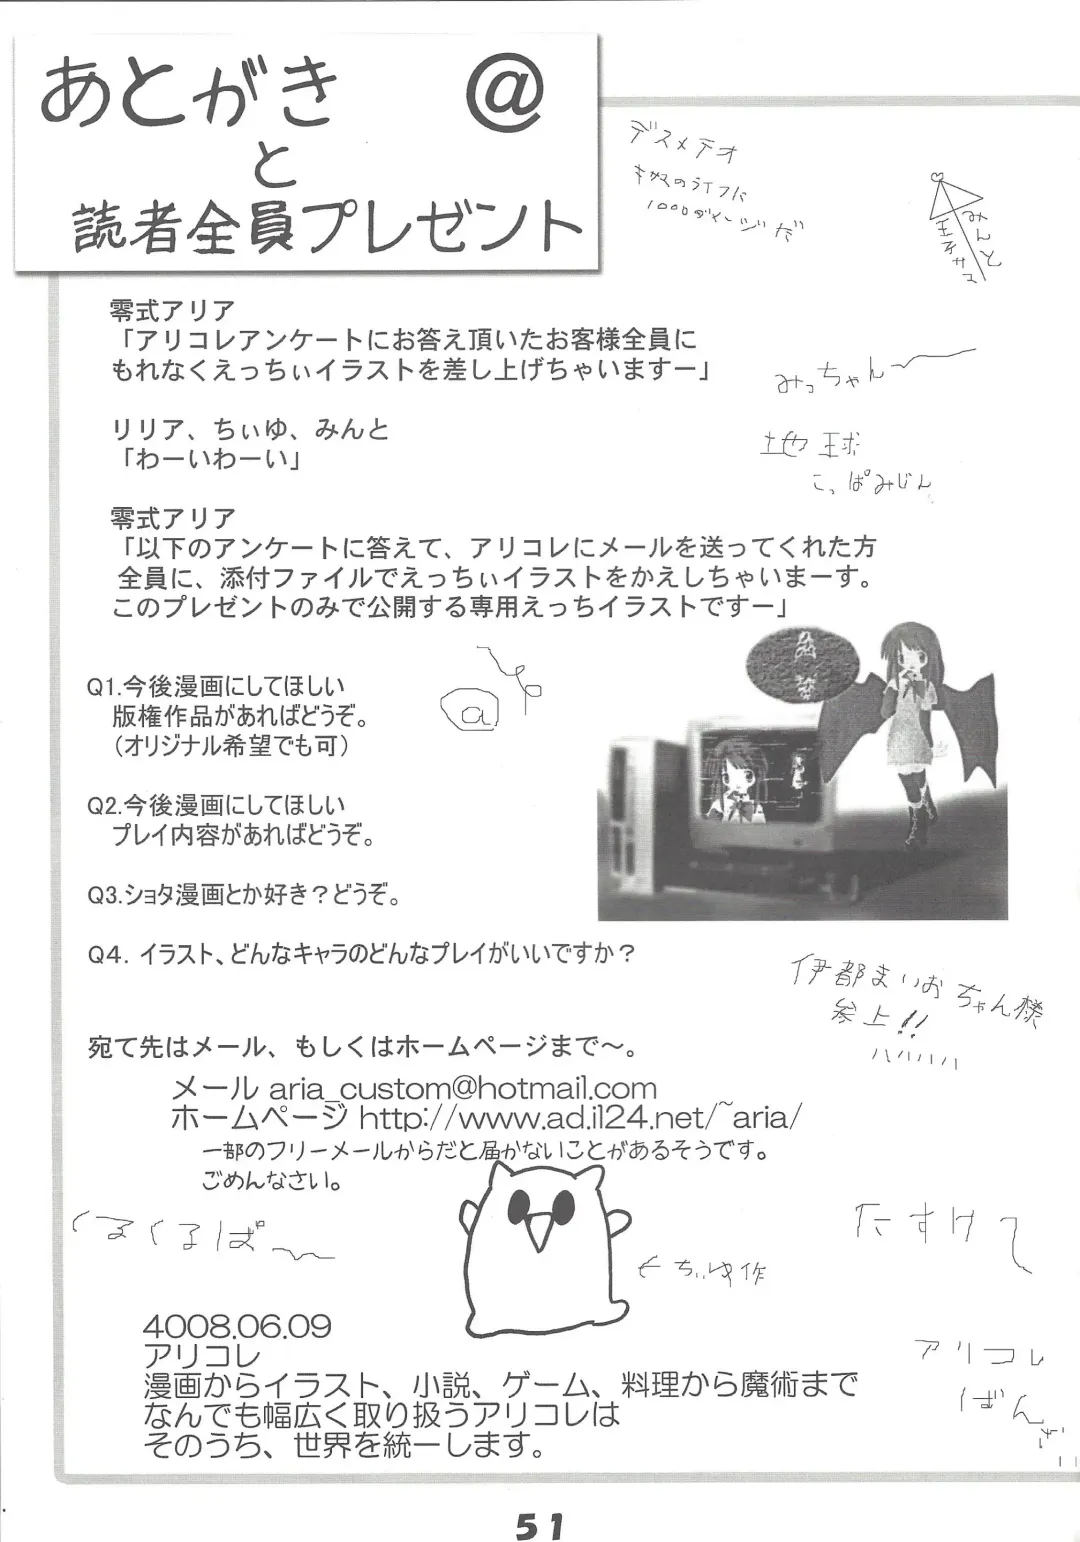 あとがき @
と
読者全員プレゼント
デスメテオ
キサマのライフに
1000ダメージだ
みんと
王子サマ
零式アリア
「アリコレアンケートにお答え頂いたお客様全員に
もれなくえっちぃイラストを差し上げちゃいますー」
みっちゃん～
リリア、ちぃゆ、みんと
「わーいわーい」
地球
こっぱみじん
零式アリア
「以下のアンケートに答えて、アリコレにメールを送ってくれた方
全員に、添付ファイルでえっちぃイラストをかえしちゃいまーす。
このプレゼントのみで公開する専用えっちイラストですー」
Q1.今後漫画にしてほしい
版権作品があればどうぞ。
（オリジナル希望でも可）
@
Q2.今後漫画にしてほしい
プレイ内容があればどうぞ。
Q3.ショタ漫画とか好き？どうぞ。
Q4. イラスト、どんなキャラのどんなプレイがいいですか？
伊都まいおちゃん様
参上!!
ハハハハハ
宛て先はメール、もしくはホームページまで～。
メール aria_custom@hotmail.com
ホームページ http://www.ad.il24.net/~aria/
一部のフリーメールからだと届かないことがあるそうです。
ごめんなさい。
くるくるぱ～
たすけて
←ちぃゆ作
4008.06.09
アリコレ
漫画からイラスト、小説、ゲーム、料理から魔術まで
なんでも幅広く取り扱うアリコレは
そのうち、世界を統一します。
アリコレ
ばんざい
51